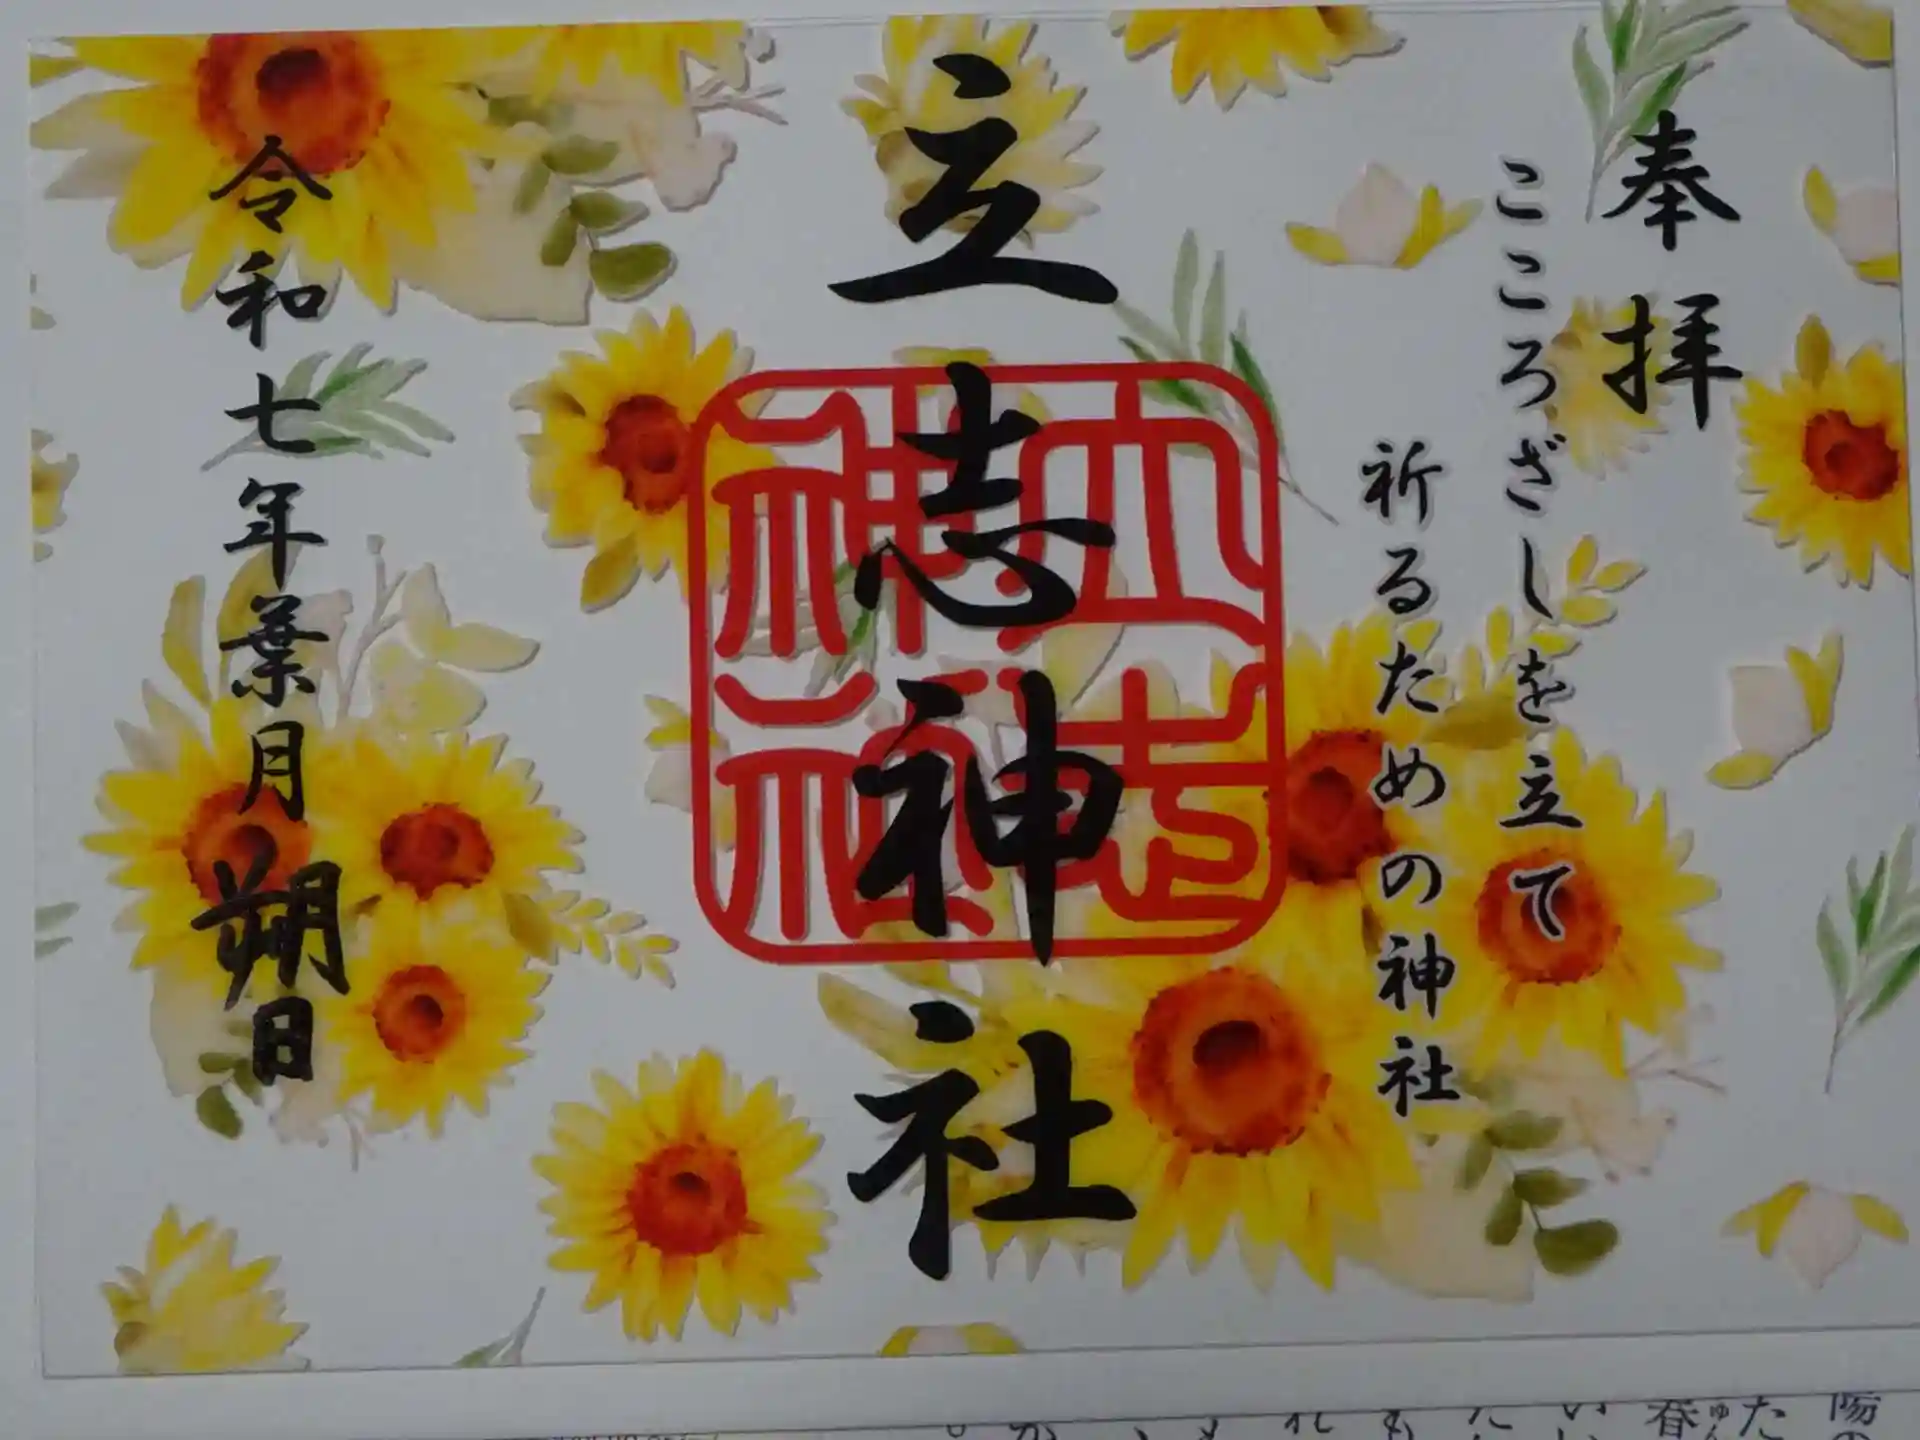 奉拝
こころざしを立て
祈るための神社
立志神社
立志神社
令和七年葉月朔日
陽の
た
春